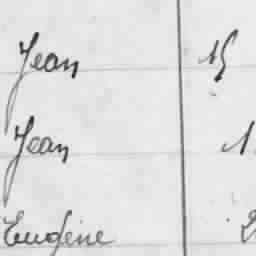 Jean 15
Jean 1
Eugène 2